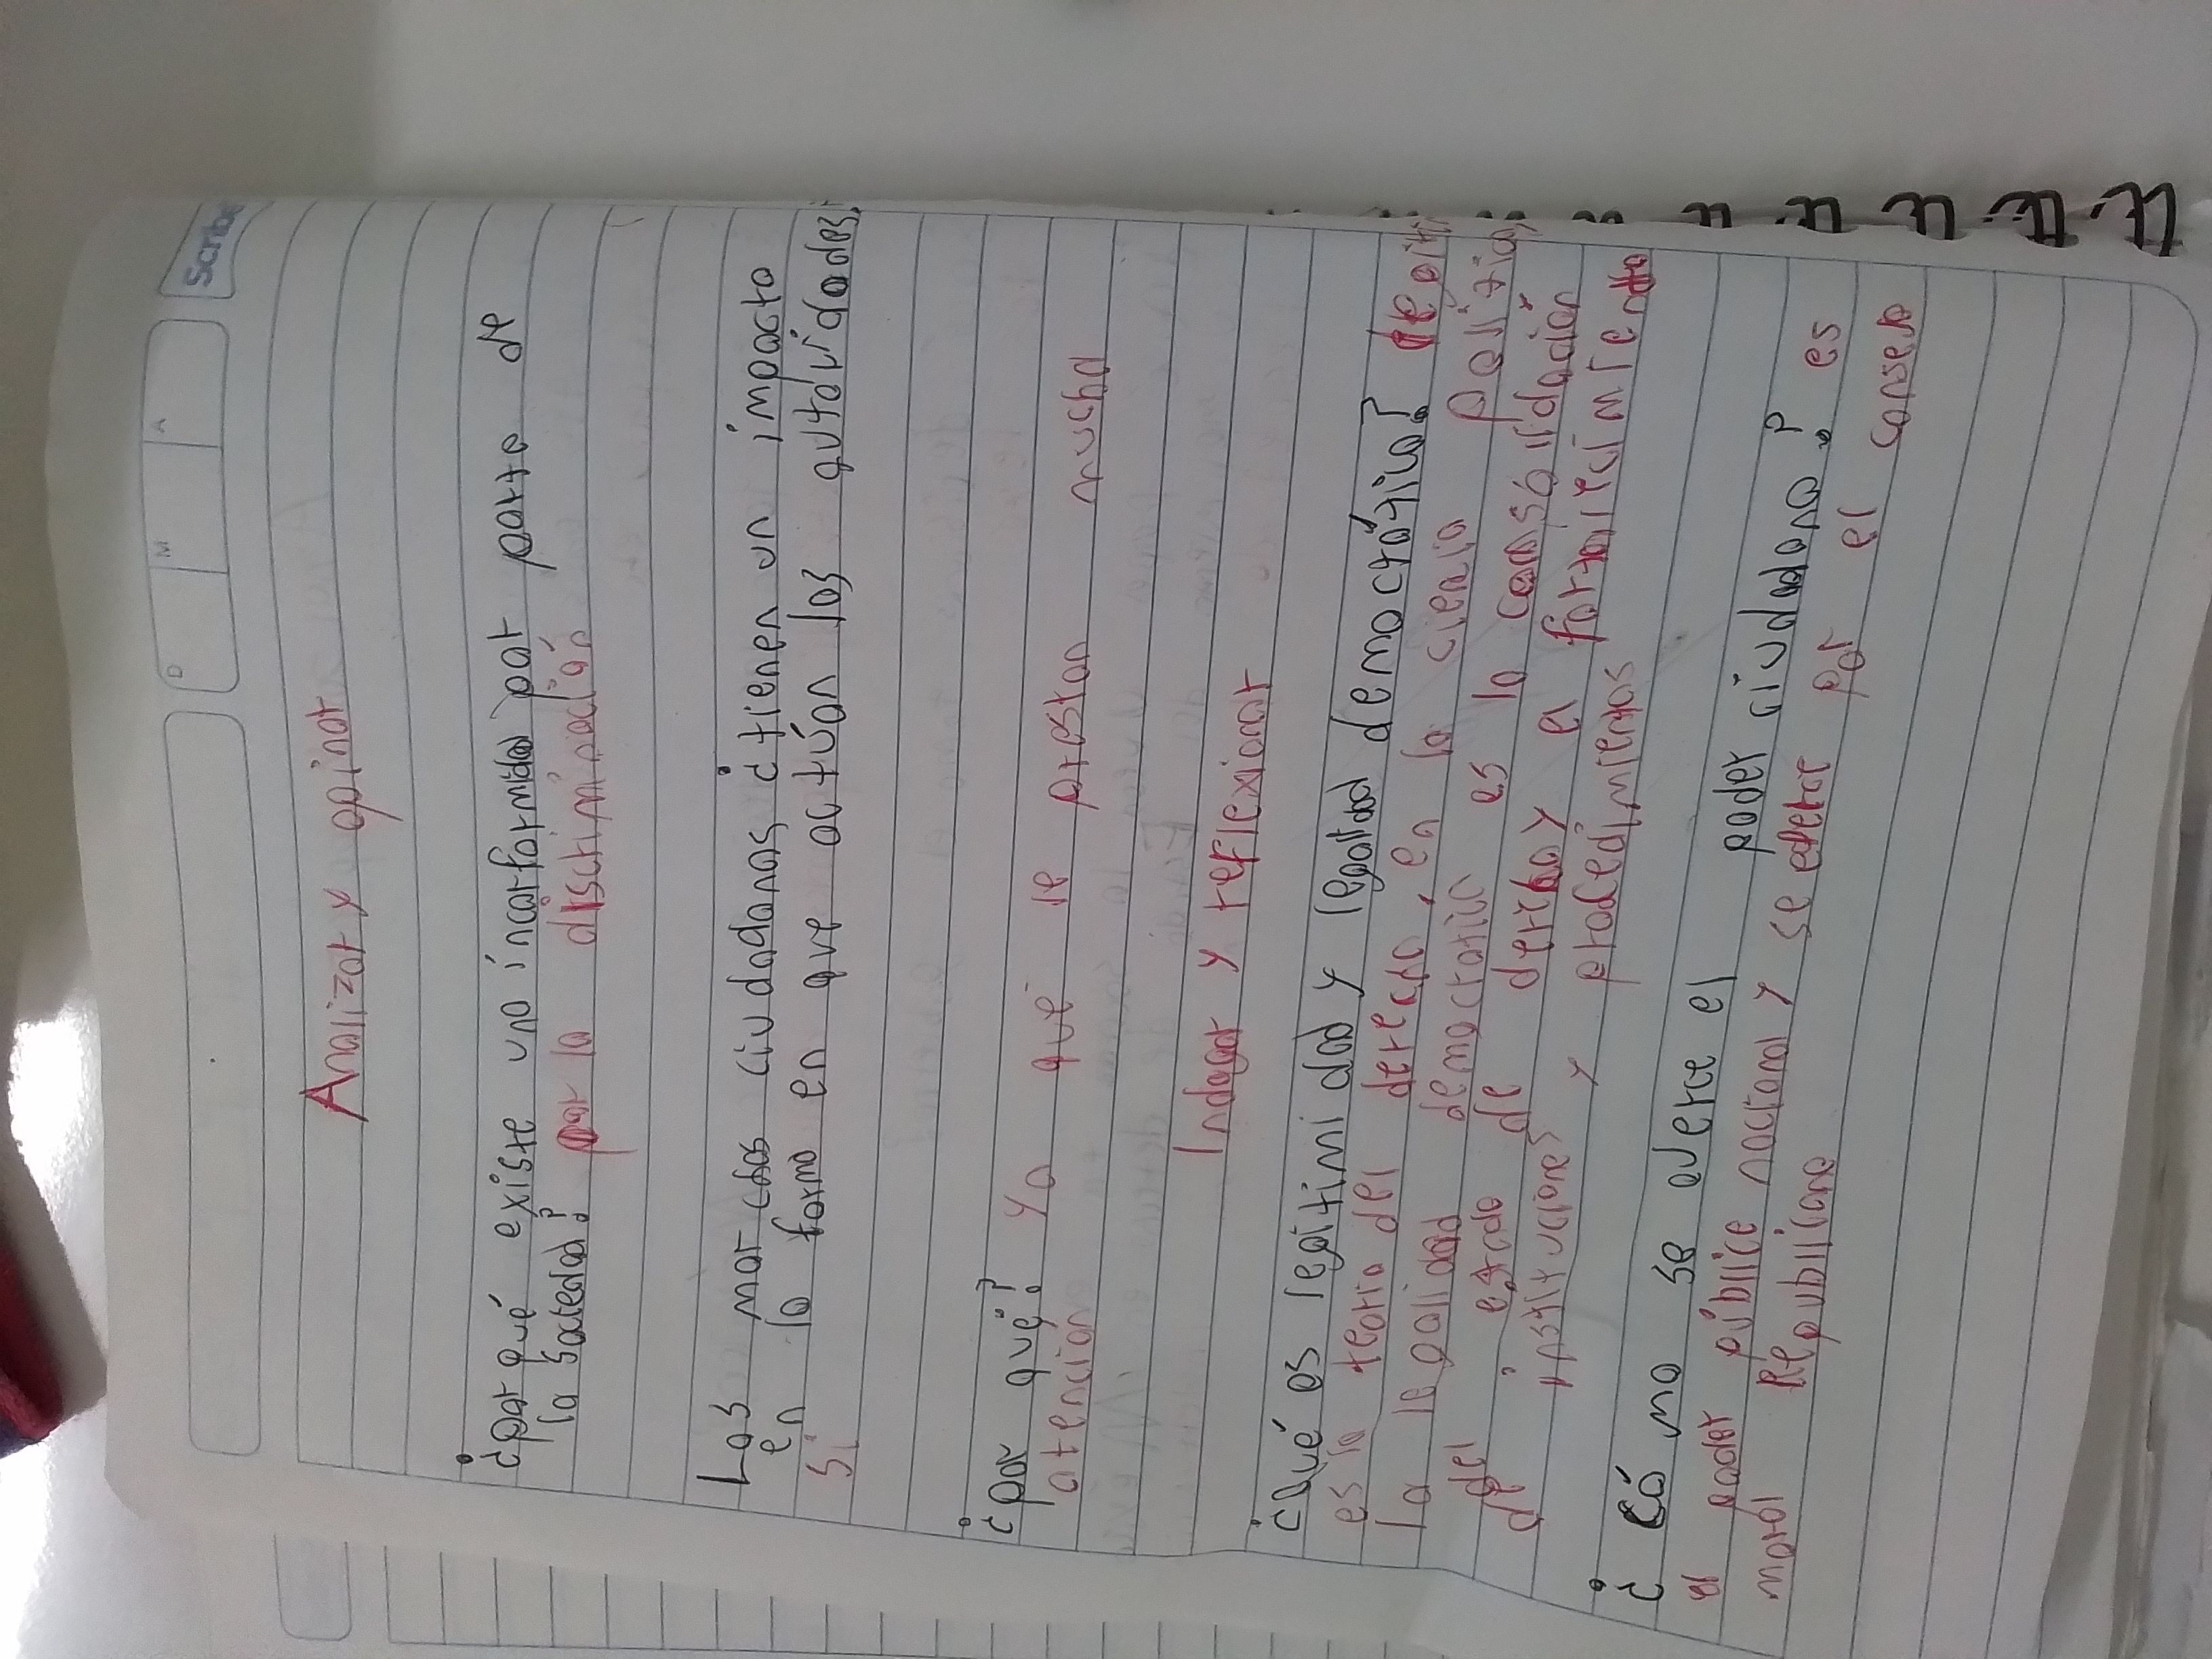 Scribe
D M A
Analizar y opinar
¿por qué existe una incorformidad por parte de
la Sociedad? por la discriminación
Las marchas ciudadanas ¿tienen un impacto
en la forma en que actúan las autoridades?
Si
¿por qué? ya que le prestan mucha
atención
Indagar y reflexionar
¿Qué es legitimidad y legalidad democrática?
es la teoria del derecho, en la ciencia politica
la legalidad democratica es la consolidación
del estado de derecho y el fortalecimiento
de instituciones y procedimientos
¿Cómo se ejerce el poder ciudadano? es
el poder público nacional y se ejerce por el consejo
moral Republicano